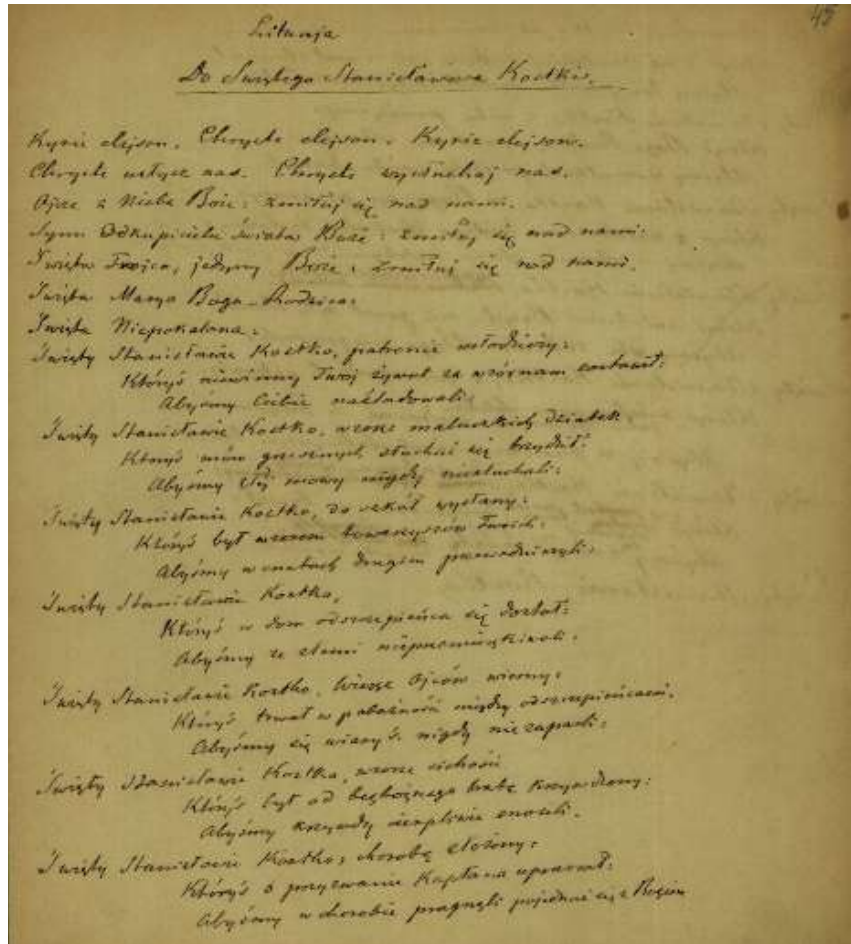 45
Litanija
Do Świętego Stanisława Kostki.
Kyrie elejson. Chryste elejson. Kyrie elejson.
Chryste usłysz nas. Chryste wysłuchaj nas.
Ojcze z Nieba Boże: zmiłuj się nad nami.
Synu Odkupicielu świata Boże: zmiłuj się nad nami.
Święta Trójca, jedyny Boże: zmiłuj się nad nami.
Święta Marya Boga-Rodzica:
Święta Niepokalana:
Święty Stanisławie Kostko, patronie młodzieży:
Któryś niewinny Twój żywot za wzór nam zostawił:
Abyśmy Ciebie naśladowali:
Święty Stanisławie Kostko, wzorze maluczkich dziatek
Któryś mów grzesznych słuchać się brzydził:
Abyśmy złej mowy nigdy niesłuchali:
Święty Stanisławie Kostko, do szkół wysłany:
Któryś był wzorem towarzyszów Twoich:
Abyśmy w cnotach drugim przewodniczyli:
Święty Stanisławie Kostko,
Któryś w dom odszczepieńca się dostał:
Abyśmy ze złemi nieprzemieszkiwali.
Święty Stanisławie Kostko, Wierze Ojców wierny:
Któryś trwał w pobożności między odszczepieńcami.
Abyśmy się wiary ś. nigdy nie zaparli:
Święty Stanisławie Kostko, wzorze cichości
Któryś był od bezbożnego brata krzywdzony:
Abyśmy krzywdy cierpliwie znosili.
Święty Stanisławie Kostko, chorobą złożony:
Któryś o przyzwanie Kapłana upraszał:
Abyśmy w chorobie pragnęli pojednać się z Bogiem